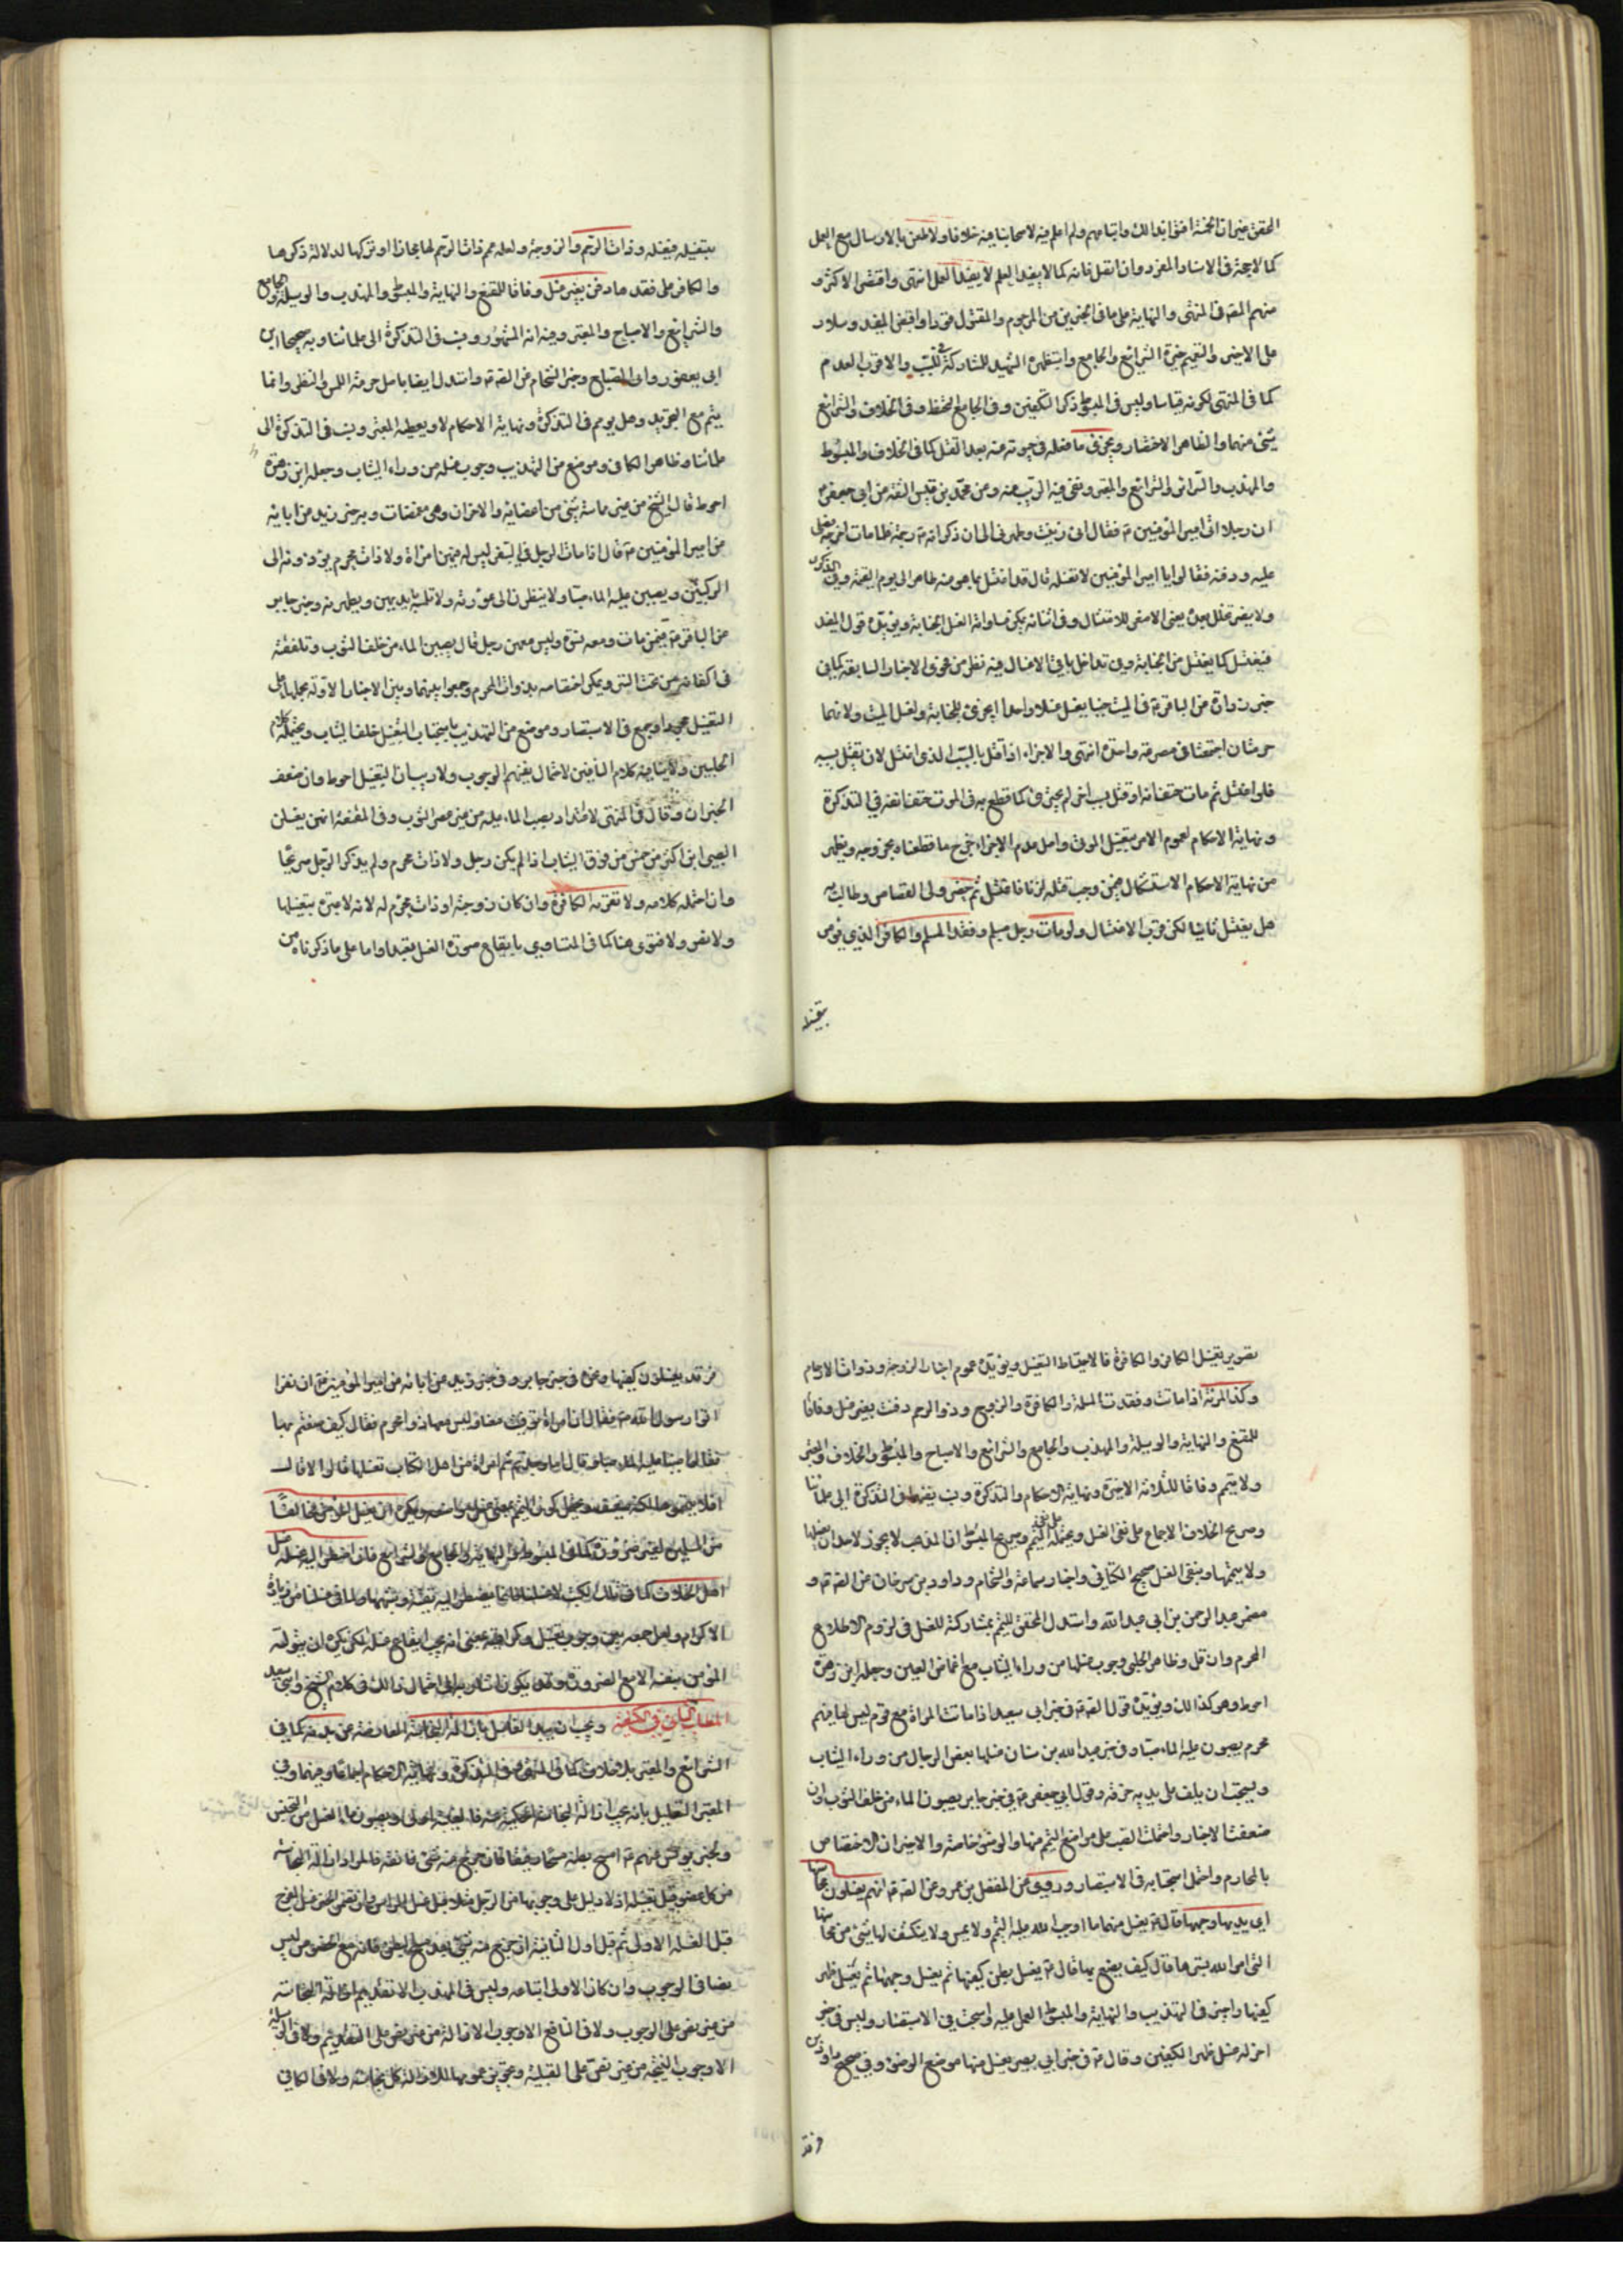 المحقق من ان الخمسة افتوا بذلك واتباعهم ولم اعلم فيه لاصحابنا فيه خلافا ولا طعن بالارسال مع العمل
كما لا حجة في الاسناد المفرد وان اتصل فانه كما لا يفيد العلم لا يفيد العمل انتهى واقتصر الاكثر و
منهم المصنف في المنتهى والنهاية على ما في الخبرين من المرجوم والمقتول قودا واقتصر المفيد وسلار
على الاخير والتعميم خيرة الشرائع والجامع واستظهره الشهيد للمشاركة في السبب والاقرب العدم
كما في المنتهى لكونه قياسا وليس في المبسوط ذكر التكفين وفي الجامع التحنط وفي الخلاف والشرائع
شئ منهما والظاهر الاختصار ويجزئ ما فعله في حيوته عنه بعد القتل كما في الخلاف والمبسوط
والمهذب والسرائر والشرائع والمعتبر ونفى فيه الريب عنه وعن محمد بن قيس الثقة عن ابي جعفر
ان رجلا اتى امير المؤمنين فقال اني زنيت وطهرني الى ان ذكر انه رجمه فلما مات اخرجه فصلى
عليه ودفنه فقالوا يا امير المؤمنين لا تغسله قال قد اغتسل بما هو منه طاهر الى يوم القيمة وفي الذكرى
ولا يضر تخلل حدث يعني الاصغر للامتثال وفي اثنائه يمكن مساواته لغسل الجنابة ويؤيده قول المفيد
فيغتسل كما يغتسل من الجنابة وفي تداخل باقي الاغسال فيه نظر من فحوى الاخبار السابقة كما في
خبر زرارة عن الباقر في الميت جنبا يغسل غسلا واحدا يجزئ للجنابة ولغسل الميت ولانهما
حرمتان اجتمعتا في حرمة واحدة انتهى والاجزاء اذا قتل بالسبب الذي اغتسل لان يقتل بسببه
فلو اغتسل ثم مات حتف انفه او قتل بسبب اخر لم يجزئ كما قطع به في الموت حتف انفه في التذكرة
ونهاية الاحكام لعموم الامر بتغسيل الموتى واصل عدم الاجزاء خرج ما قطعنا بخروجه ويظهر
من نهاية الاحكام الاستشكال فيمن وجب قتله لزنا فاغتسل ثم حضر ولي القصاص وطالب به
هل يغتسل ثانيا لكن قرب الاغتسال ولو مات رجل مسلم وفقد المسلم والكافر الذي يؤمر
بتغسيله
بتغسيله فيغسله وذوات الرحم والزوجة ولعله عمم ذات الرحم لها مجازا او تركها لدلالة ذكرها
والكافر على فقدها دفن بغير غسل وفاقا للمقنع والنهاية والمبسوط والمهذب والوسيلة والجامع
والشرائع والاصباح والمعتبر وفيه انه المشهور ونسب في التذكرة الى علمائنا وبه صحيحا ابن
ابي يعفور وابي الصباح وخبر الشحام عن الصادق واستدل ايضا باصل حرمة اللمس والنظر وانما
يتم مع التجريد وهل ييمم في التذكرة ونهاية الاحكام لا ويعطيه المعتبر ونسب في التذكرة الى
علمائنا وظاهر الكافي وموضع من التهذيب وجوب غسله من وراء الثياب وجعله ابن زهرة
احوط قال الشيخ من غير مماسة شئ من اعضائه والاخران وهي مغمضات وبه خبر زيد عن ابائه
عن امير المؤمنين قال اذا مات الرجل في السفر ليس له فيهن امراة ولا ذات محرم يؤزرونه الى
الركبتين ويصببن عليه الماء صبا ولا ينظرن الى عورته ولا تلمسه بايديهن ويطهرنه وخبر جابر
عن الباقر فيمن مات ومعه نسوة وليس معهن رجل قال يصببن الماء من خلف الثوب وتلففنه
في اكفانه من تحت الستر ويمكن اختصاصه بذوات المحرم وجمعوا بينهما وبين الاخبار الاولة بحملها على
التغسيل مجردا وجمع في الاستبصار وموضع من التهذيب باستحباب التغسيل خلف الثياب ويحتمله كلام
الحلبيين ولا ينافيه كلام النافين لاحتمال نفيهم الوجوب ولا ريب ان التغسيل احوط وان ضعف
الخبران وقال في المنتهى لا اعتداد بصب الماء عليه من غير عصر الثوب وفي المقنعة انهن يغسلن
الصبي ابن اكثر من خمس من فوق الثياب اذا لم يكن رجل ولا ذات محرم ولم يذكر الرجل صريحا
وان احتمله كلامه ولا تقربه الكافرة وان كان زوجة او ذات محرم له لانه لا عبرة بتغسيلها
ولا نص ولا فتوى هنا كما في المتساوي بايقاع صورة الغسل تعبدا واما على ما ذكرناه من
تقرير تغسيل الكافر والكافرة فالاحتياط التغسيل ويؤيده عموم اخبار الزوجة وذوات الارحام
وكذا المرئة اذا ماتت وفقدت المسلمة والكافرة والزوج وذو الرحم دفنت بغير غسل وفاقا
للمقنع والنهاية والوسيلة والمهذب والجامع والشرائع والاصباح والمبسوط والخلاف والمعتبر
ولا ييمم وفاقا للثلاثة الاخيرة ونهاية الاحكام والتذكرة ونسب نفيهما في التذكرة الى علمائنا
وصريح الخلاف الاجماع على نفي الغسل ويحتمله على نفي التيمم وصريح المبسوط ان المذهب لا يجوز لاحد ان يغسلها
ولا ييممها وبنفي الغسل صحيح الكناني واخبار سماعة والشحام وداود بن سرحان عن الصادق و
مضمر عبد الرحمن بن ابي عبد الله واستدل المحقق للتيمم بمشاركته للغسل في لزوم الاطلاع
المحرم وان قل وظاهر الحلبي وجوب غسلها من وراء الثياب مع اغماض العين وجعله ابن زهرة
احوط وهو كذلك ويؤيده قول الصادق في خبر ابي سعيد اذا ماتت المراة مع قوم ليس لها فيهم
محرم يصبون عليها الماء صبا وفي خبر عبد الله بن سنان غسلها بعض الرجال من وراء الثياب
ويستحب ان يلف على يديه خرقة وقول ابي جعفر في خبر جابر يصبون الماء من خلف الثوب وان
ضعفت الاخبار واحتملت الصب على مواضع التيمم منها والوضوء خاصة والاخيران الاختصاص
بالمحارم واحتمل استحبابه في الاستبصار وروى عن المفضل بن عمر وعن الصادق انهم يغسلون محاسنها
اي يديها ووجهها قال يغسل منها ما اوجب الله عليه التيمم ولا يمس ولا يكشف لها شئ من محاسنها
التي امر الله بسترها قال كيف يصنع بها قال يغسل بطن كفيها ثم يغسل وجهها ثم يغسل ظهر
كفيها واجيز في التهذيب والنهاية والمبسوط العمل عليه واستحب في الاستبصار وليس في خبر
اخر له غسل ظهر الكفين وقال في خبر ابي بصير يغسل منها موضع الوضوء وفي صحيح داود بن
فرقد
فرقد يغسلون كفيها ونحوه في خبر جابر وفي خبر زيد عن ابائه عن امير المؤمنين ان نفرا
اتوا رسول الله فقالوا ان امراة توفيت معنا وليس معها ذو محرم فقال كيف صنعتم بها
فقالوا صببنا عليها الماء صبا قال اما وجدتم امراة من اهل الكتاب تغسلها قالوا لا قال
افلا يممتموها لكنه ضعيف ويحتمل كون التيمم بمعنى غسل مواضعه ويكره ان يغسل المؤمن مخالفا
من المسلمين لغير ضرورة كما في المبسوط والنهاية والجامع والشرائع فان اضطر اليه غسله غسل
اهل الخلاف كما في تلك الكتب
الاكرام
المؤمن بنفسه الا مع الضرورة
المطلب الثاني في الكيفية ويجب ان يبدا الغاسل بازالة النجاسة العارضة عن بدنه كما في
الشرائع والمعتبر بلا خلاف كما في المنتهى وفي التذكرة ونهاية الاحكام اجماعا وفيهما وفي
المعتبر التعليل بانه يجب ازالة النجاسة الحكمية عنه فالعينية اولى وبصون ماء الغسل من التنجيس
وبخبر يونس عنهم امسح بطنه مسحا رفيقا فان خرج منه شئ فانقه فالمراد ازالة النجاسة
عن كل عضو قبل تغسيله اذ لا دليل على وجوبها
قبل الغسلة الاولى ثم قبل اول الثانية ان خرج منه شئ بعد مسح البطن فانه مع الخصوص ليس
نصا في الوجوب وان كان الاولى اتباعه وليس في المهذب الا تقديم ازالة النجاسة
من غير نص على الوجوب ولا في النافع الا وجوب الازالة من غير نص على التقديم ولا في الوسيلة
الا وجوب التنجية من غير نص على القبلية ولا في الكافي